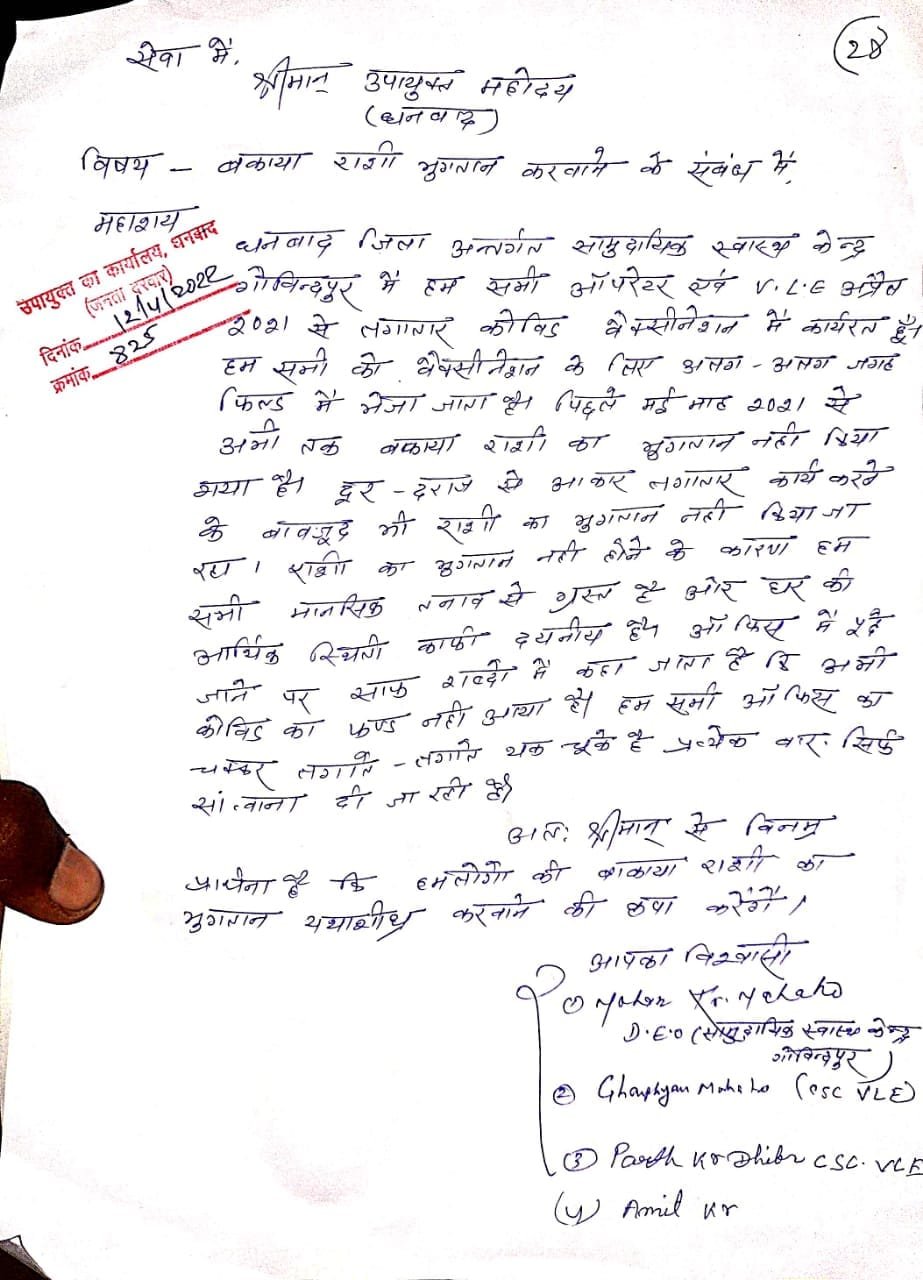 28
सेवा में,
श्रीमान् उपायुक्त महोदय
(धनबाद)
विषय - बकाया राशी भुगतान करवाने के संबंध में,
महाशय
उपायुक्त का कार्यालय, धनबाद
(जनता दरबार)
दिनांक 12/4/2022
क्रमांक 825
धनबाद जिला अन्तर्गत सामुदायिक स्वास्थ केन्द्र
गोविन्दपुर में हम सभी ऑपरेटर एवं V.L.E अप्रैल
2021 से लगातार कोविड वैक्सीनेशन में कार्यरत हूँ।
हम सभी को वैक्सीनेशन के लिए अलग-अलग जगह
फिल्ड में भेजा जाता है। पिछले मई माह 2021 से
अभी तक बकाया राशी का भुगतान नही किया
गया है। दूर-दराज से आकर लगातार कार्य करने
के बावजूद भी राशी का भुगतान नही किया जा
रहा। राशी का भुगतान नही होने के कारण हम
सभी मानसिक तनाव से ग्रस्त है और घर की
आर्थिक स्थिती काफी दयनीय है। ऑफिस में
जाने पर साफ शब्दो में कहा जाता है कि अभी
कोविड का फण्ड नही आया है। हम सभी ऑफिस का
चक्कर लगाते-लगाते थक चूके है प्रत्येक बार सिर्फ
सांत्वाना दी जा रही है।
अतः श्रीमान् से विनम्र
प्रार्थना है कि हमलोगो की बाकाया राशी का
भुगतान यथाशीघ्र करवाने की कृपा करेंगें।
आपका विश्वासी
① Mohan Kr. Mahato
D.E.O (सामुदायिक स्वास्थ केन्द्र
गोविन्दपुर)
② Mahato (CSC VLE)
③ Parth Kr Dhibar CSC. VLE
(4) Amil Kr